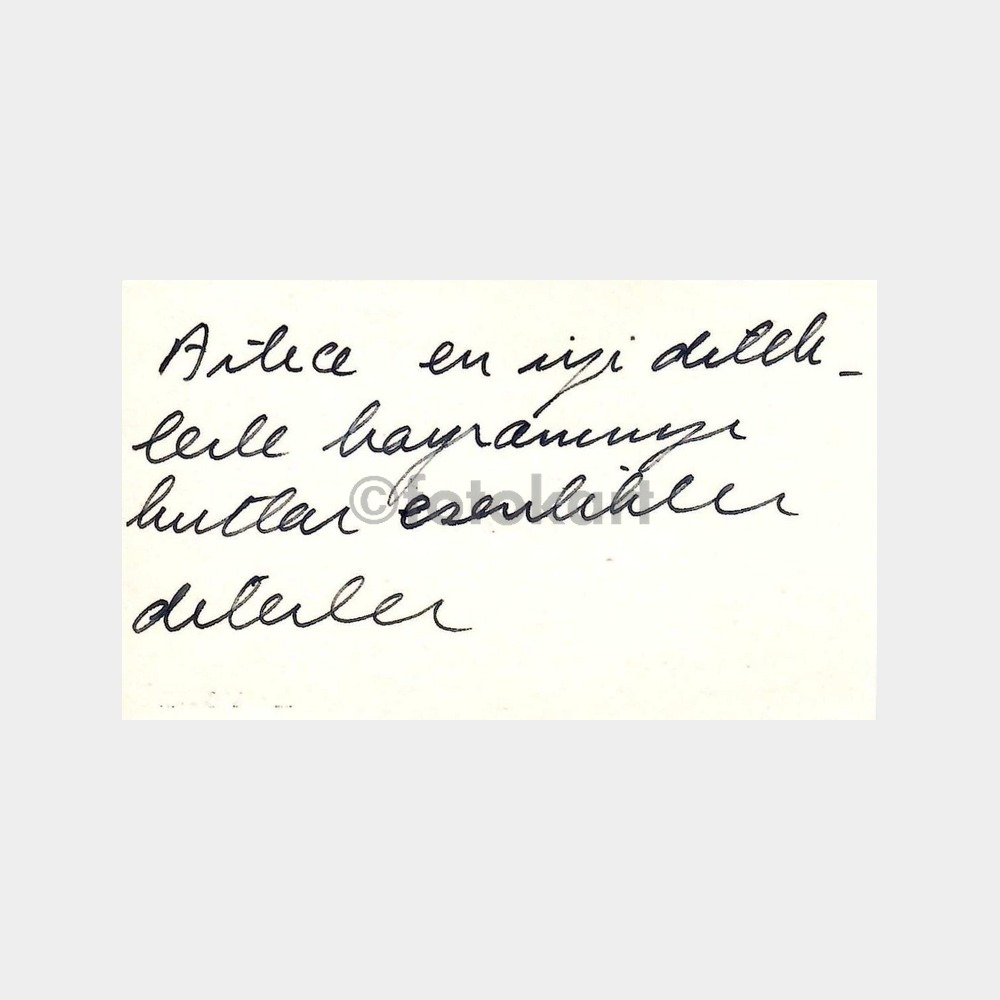 Ailece en iyi dilek-
lerle bayramınızı
kutlar esenlikler
dilerler
©fotokart